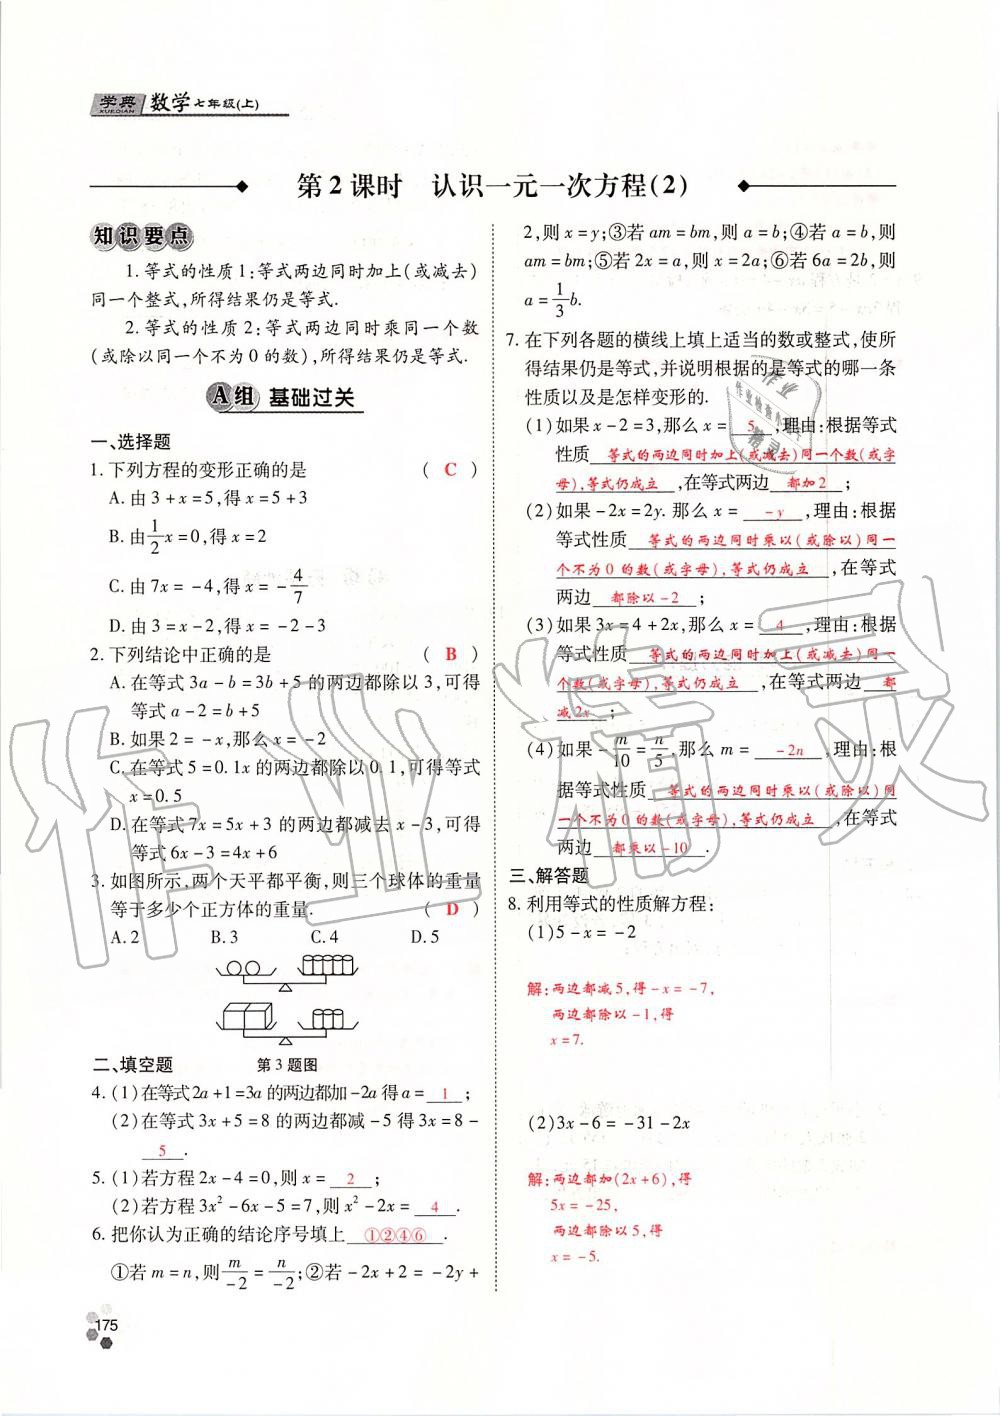 学典 数学七年级(上)
XUEDIAN
第2课时 认识一元一次方程(2)
知识要点
1.等式的性质1:等式两边同时加上(或减去)
同一个整式,所得结果仍是等式.
2.等式的性质2:等式两边同时乘同一个数
(或除以同一个不为0的数),所得结果仍是等式.
A组 基础过关
一、选择题
1.下列方程的变形正确的是 ( C )
A.由3+x=5,得x=5+3
B.由1/2x=0,得x=2
C.由7x=-4,得x=-4/7
D.由3=x-2,得x=-2-3
2.下列结论中正确的是 ( B )
A.在等式3a-b=3b+5的两边都除以3,可得
等式a-2=b+5
B.如果2=-x,那么x=-2
C.在等式5=0.1x的两边都除以0.1,可得等式
x=0.5
D.在等式7x=5x+3的两边都减去x-3,可得
等式6x-3=4x+6
3.如图所示,两个天平都平衡,则三个球体的重量
等于多少个正方体的重量. ( D )
A.2 B.3 C.4 D.5
第3题图
二、填空题
4.(1)在等式2a+1=3a的两边都加-2a得a=1;
(2)在等式3x+5=8的两边都减-5得3x=8-
5.
5.(1)若方程2x-4=0,则x=2;
(2)若方程3x²-6x-5=7,则x²-2x=4.
6.把你认为正确的结论序号填上①②④⑥.
①若m=n,则m/-2=n/-2;②若-2x+2=-2y+
2,则x=y;③若am=bm,则a=b;④若a=b,则
am=bm;⑤若2x=a,则x=2a;⑥若6a=2b,则
a=1/3b.
7.在下列各题的横线上填上适当的数或整式,使所
得结果仍是等式,并说明根据的是等式的哪一条
性质以及是怎样变形的.
(1)如果x-2=3,那么x=5,理由:根据等式
性质 等式的两边同时加上(或减去)同一个数(或字
母),等式仍成立,在等式两边 都加2;
(2)如果-2x=2y.那么x=-y,理由:根据
等式性质 等式的两边同时乘以(或除以)同一
个不为0的数(或字母),等式仍成立,在等式
两边 都除以-2;
(3)如果3x=4+2x,那么x=4,理由:根据
等式性质 等式的两边同时加上(或减去)同一
个数(或字母),等式仍成立,在等式两边 都
减2x;
(4)如果-m/10=n/5,那么m=-2n,理由:根
据等式性质 等式的两边同时乘以(或除以)同
一个不为0的数(或字母),等式仍成立,在等式
两边 都乘以-10.
三、解答题
8.利用等式的性质解方程:
(1)5-x=-2
解:两边都减5,得-x=-7,
两边都除以-1,得
x=7.
(2)3x-6=-31-2x
解:两边都加(2x+6),得
5x=-25,
两边都除以5,得
x=-5.
175
作业精灵